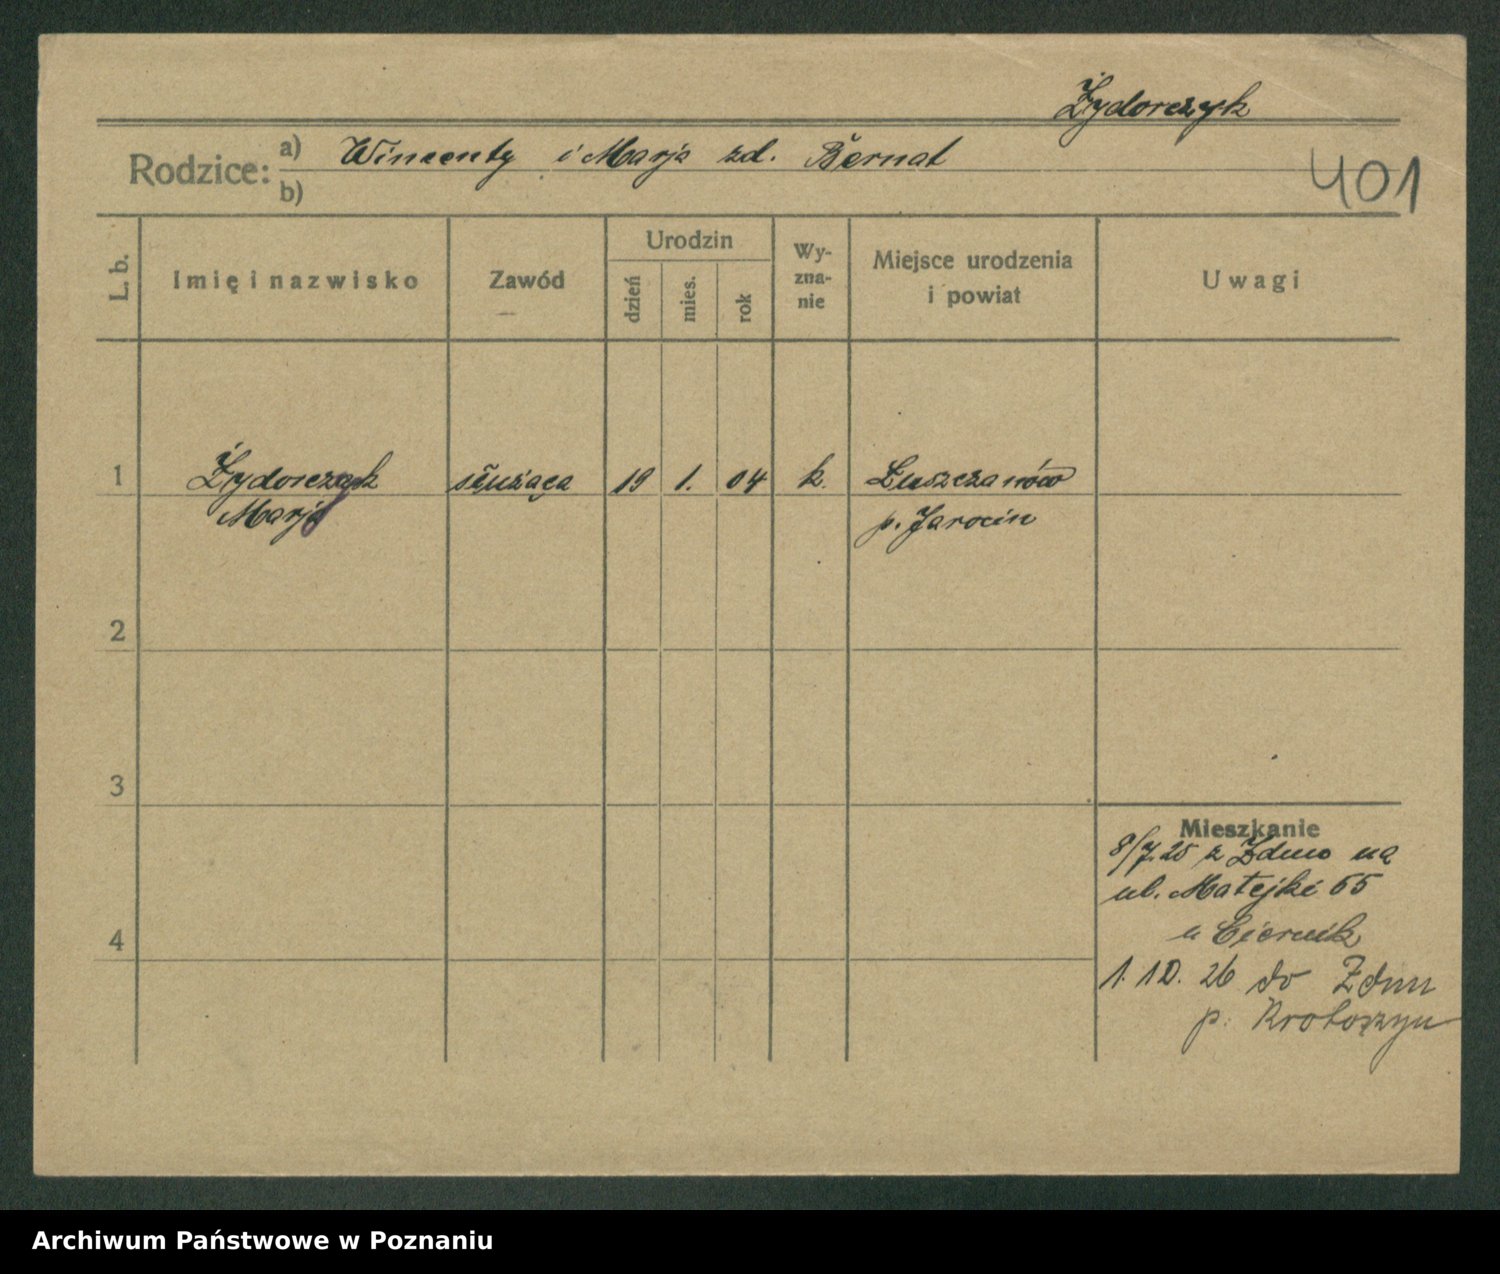 Żydorczyk
Rodzice: a) Wincenty i Marja zd. Bernat
b)
401
L. b. Imię i nazwisko Zawód Urodzin dzień mies. rok Wy-zna-nie Miejsce urodzenia i powiat Uwagi
1 Żydorczyk służąca 19 1. 04 k. Łuszczanów
Marja p. Jarocin
2
3
Mieszkanie
8/7.25 z Zduno na
ul. Matejki 65
u Ciernik
4
1.10.26 do Zdun
p. Krotoszyn
Archiwum Państwowe w Poznaniu